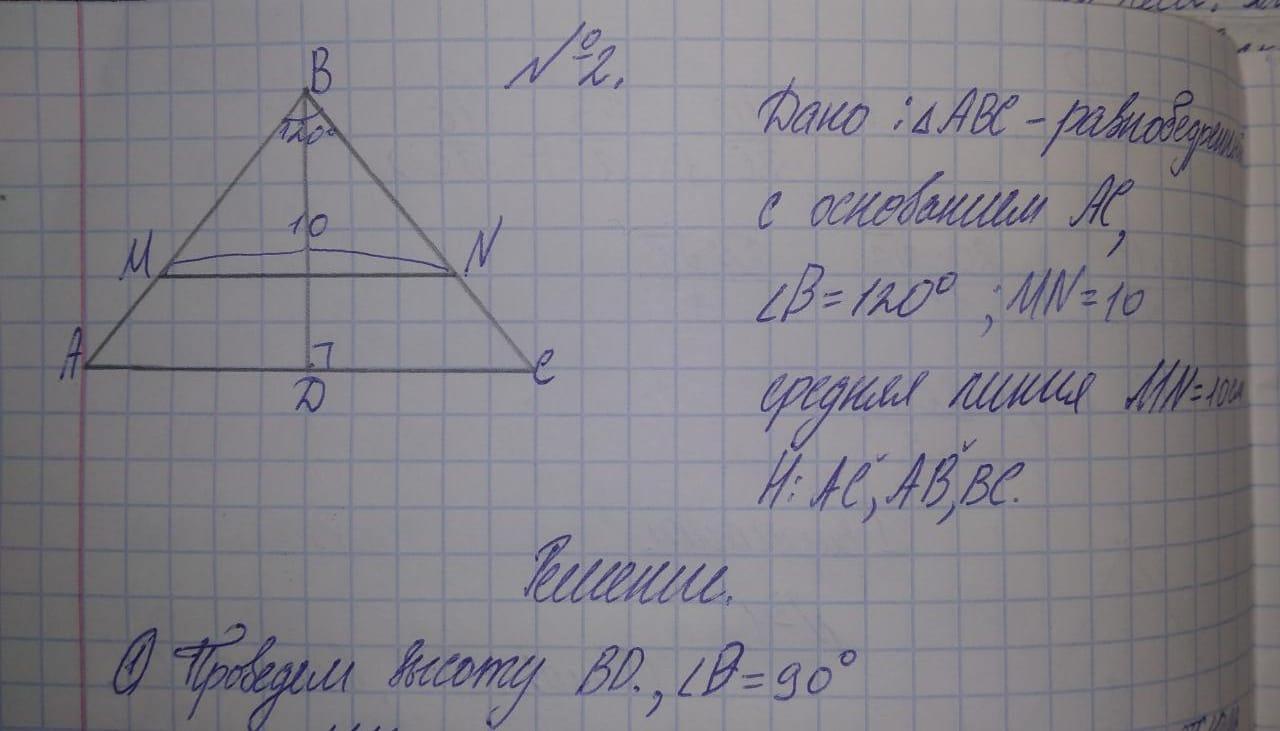 №2.
B
120°
10
M
N
A
D
C
Дано: △ABC - равнобедренный
с основанием AC,
∠B=120°; MN=10
средняя линия MN=10см
Н: AC, AB, BC.
Решение.
① Проведем высоту BD., ∠D=90°